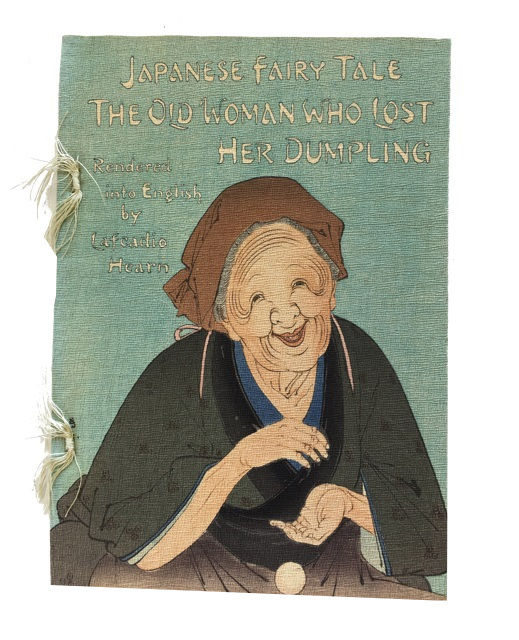 JAPANESE FAIRY TALE
THE OLD WOMAN WHO LOST
HER DUMPLING
Rendered
into English
by
Lafcadio
Hearn